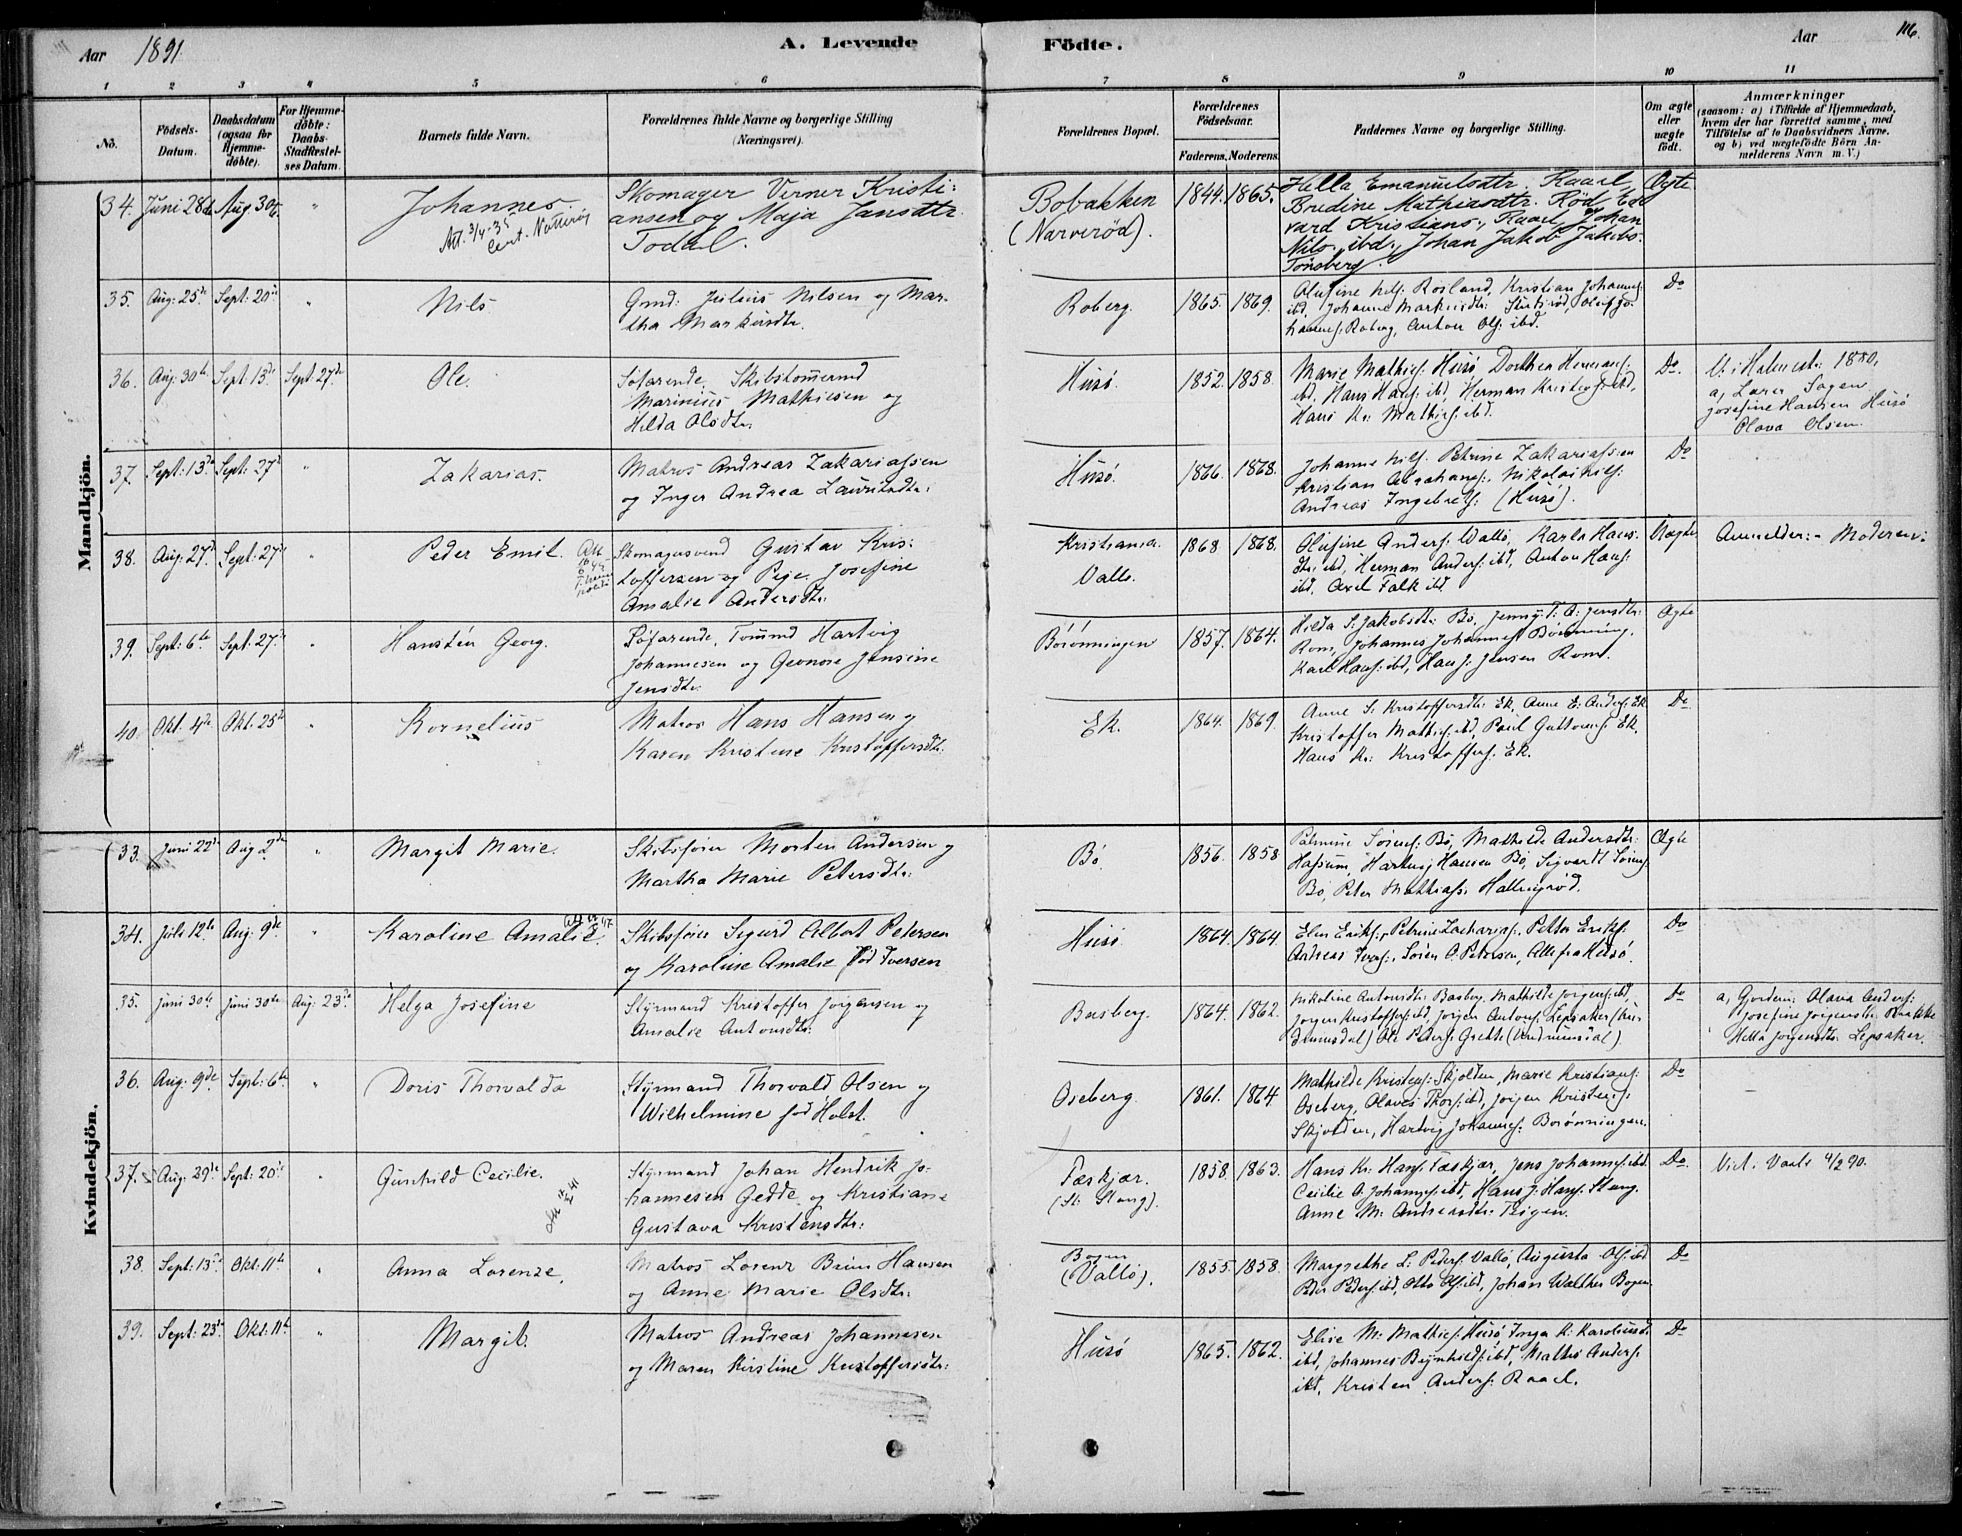 Aar 1891.
A. Levende Födte.
Aar
116.
1 2 3 4 5 6 7 8 9 10 11
No.
Födsels-Datum.
Daabsdatum (ogsaa for Hjemme-döbte).
For Hjemme-döbte: Daabs Stadfæstel-ses Datum.
Barnets fulde Navn.
Forældrenes fulde Navne og borgerlige Stilling (Næringsvei).
Forældrenes Bopæl.
Forældrenes Födselsaar.
Faderens. Moderens.
Faddernes Navne og borgerlige Stilling.
Om ægte eller uægte födt.
Anmærkninger
(saasom: a) i Tilfælde af Hjemmedaab,
hvem der har forrettet samme, med
Tilföielse af to Daabsvidners Navne.
og b) ved uægtefödte Börn An-
melderens Navn m. V.)
Mandkjön.
34. Juni 28de Aug. 30te " Johannes
Att. 3/4-35
Skomager Verner Kristi-
ansen og Maja Jansdtr.
Todal.
Bobakken
(Narverød).
1844. 1865.
Hella Emanuelsdtr. Raael,
Bredine Mathiasdtr. Röd, Ed-
vard Kristians., Raael, Johan
Nils. ibd., Johan Jakob Jakobs.
Tönsberg.
Ægte
35. Aug: 25de Sept: 20de " Nils
Gmd: Julius Nilsen og Mar-
tha Markusdtr.
Roberg.
1865. 1869.
Olufine Nils: Rosland, Kristian Johannes:
ibd, Johanne Markusdtr: Oluf Jo-
hannes: Roberg, Anton Ols: ibd.
Do
36. Aug: 30te Sept: 13de Sept: 27de Ole.
Söfarende, Skibstömmermd
Marinius Mathiesen og
Hilda Olsdtr.
Husö.
1852. 1858.
Marie Mathies: Husö, Dorthea Hermans:
ibd, Hans Hans: ibd, Herman Kristens: ibd,
Hans Kr: Mathies: ibd.
Do.
1880,
a, Lars Sagen
Josefine Hansen Husö
Olava Olsen.
37. Sept: 13de Sept: 27de " Zakarias.
Matros Andreas Zakariassen
og Inger Andrea Lauritsdtr:
Husö.
1866. 1868.
Johanne Nils: Petrine Zakariassen
Kristian Abrahams:, Nikolai Nils:
Andreas Ingebrets: (Husö).
Do
38. Aug: 27de Sept: 27de " Peder Emil.
Skomagersvend Gustav Kris-
toffersen og Pige Josefine
Amalie Andersdtr:
Kristiania.
Vallö.
1868 1868.
Olufine Anders: Vallö, Karla Hans-
dtr: ibd, Herman Anders: ibd, Anton Hans:
ibd, Axel Falk ibd.
Uægte
Anmelder:- Moderen:
39. Sept: 6te Sept: 27de " Hanstén Georg.
Söfarende, Tömmd Hartvig
Johannesen og Jensine
Jensdtr.
Börönningen
1857. 1864.
Hilda S: Jakobsdtr: Bö, Jenny T. A: Jensdtr:
Rom, Johannes Johannes: Börönning.
Karl Hans: ibd, Hans J: Jensen Rom.
Ægte
40. Okt. 4de Okt. 25de " Kornelius
Matros Hans Hansen og
Karen Kristine Kristoffersdtr:
Ek.
1864. 1869.
Anne S: Kristoffersdtr: Ek, Anne E: Anders: Ek
Kristoffer Mathis: ibd, Paul Guttorms: Ek,
Hans Kr: Kristoffers: Ek.
Do
Kvindekjön.
33. Juni 22de Aug 2de " Margit Marie.
Skibsförer Morten Andersen og
Martha Marie Petersdtr:
Bö
1856. 1858
Palmine Sörens: Bö, Mathilde Andersdtr:
Hassum, Hartvig Hansen Bö, Sigvardt Sörens:
Bö, Peter Mathias: Hallingröd.
Ægte
34. Juli 12te Aug. 9de " Karoline Amalie.
Skibsförer Sigurd Albert Petersen
og Karoline Amalie föd Iversen
Husö.
1864. 1864.
Elen Eriks:, Petrine Zacharias:, Petter Eriks:
Andreas Ivers:, Sören O. Petersen, Alle fra Husö.
Do
35. Juni 30te Juni 30te Aug. 23de Helga Josefine
Styrmand Kristoffer Jörgensen og
Amalie Antonsdtr:
Basberg.
1864. 1862.
Nikoline Antonsdtr: Basberg, Mathilde Jörgens: ibd,
Jörgen Kristoffers: ibd, Jörgen Antons: Lepsaker (Un-
drumsdal) Ole Peders: Grette (Undrumsdal)
Do
a, Gjordem: Olava Anders:
Josefine Jörgensdtr: Bakke
Hella Jörgensdtr: Lepsaker.
36. Aug: 9de Sept: 6te " Doris Thorvalda
Styrmand Thorvald Olsen og
Wilhelmine föd Holst.
Oseberg.
1861. 1864
Mathilde Kristens: Skjolden, Marie Kristians:
Oseberg, Olaves Thors: ibd, Jörgen Kristens:
Skjolden, Hartvig Johannes: Börönningen.
Do
37. Aug: 29de Sept: 20de " Gunhild Cecilie.
Styrmand Johan Hendrik Jo-
hannesen Gedde og Kristiane
Gustava Kristensdtr:
Fæskjær.
(St: Slang).
1858. 1863.
Hans Kr: Hans: Fæskjær, Jens Johannes: ibd.
Cecilie O. Johannes: ibd, Hans J: Hans: Slang.
Anne M: Andreasdtr: Teigen.
Do.
Vict: Vaale 4/2 90.
38. Sept: 13de Okt: 11te " Anna Lorenze.
Matros Lorenz Bruun Hansen
og Anne Marie Olsdtr:
Bogen
(Vallö).
1855. 1858.
Margrethe L: Peders: Vallö, Augusta Ols: ibd
Peder Peders: ibd, Otto Ols: ibd, Johan Walther Bogen.
Do
39. Sept: 23de Okt: 11te " Margit.
Matros Andreas Johannesen
og Maren Kirstine Kristoffersdtr:
Husö
1865. 1862.
Elise M: Mathies: Husö, Inga K: Karoliusd:
ibd, Johannes Brynhilds: ibd, Mathis Anders:
ibd, Kristen Anders: Raael.
Do